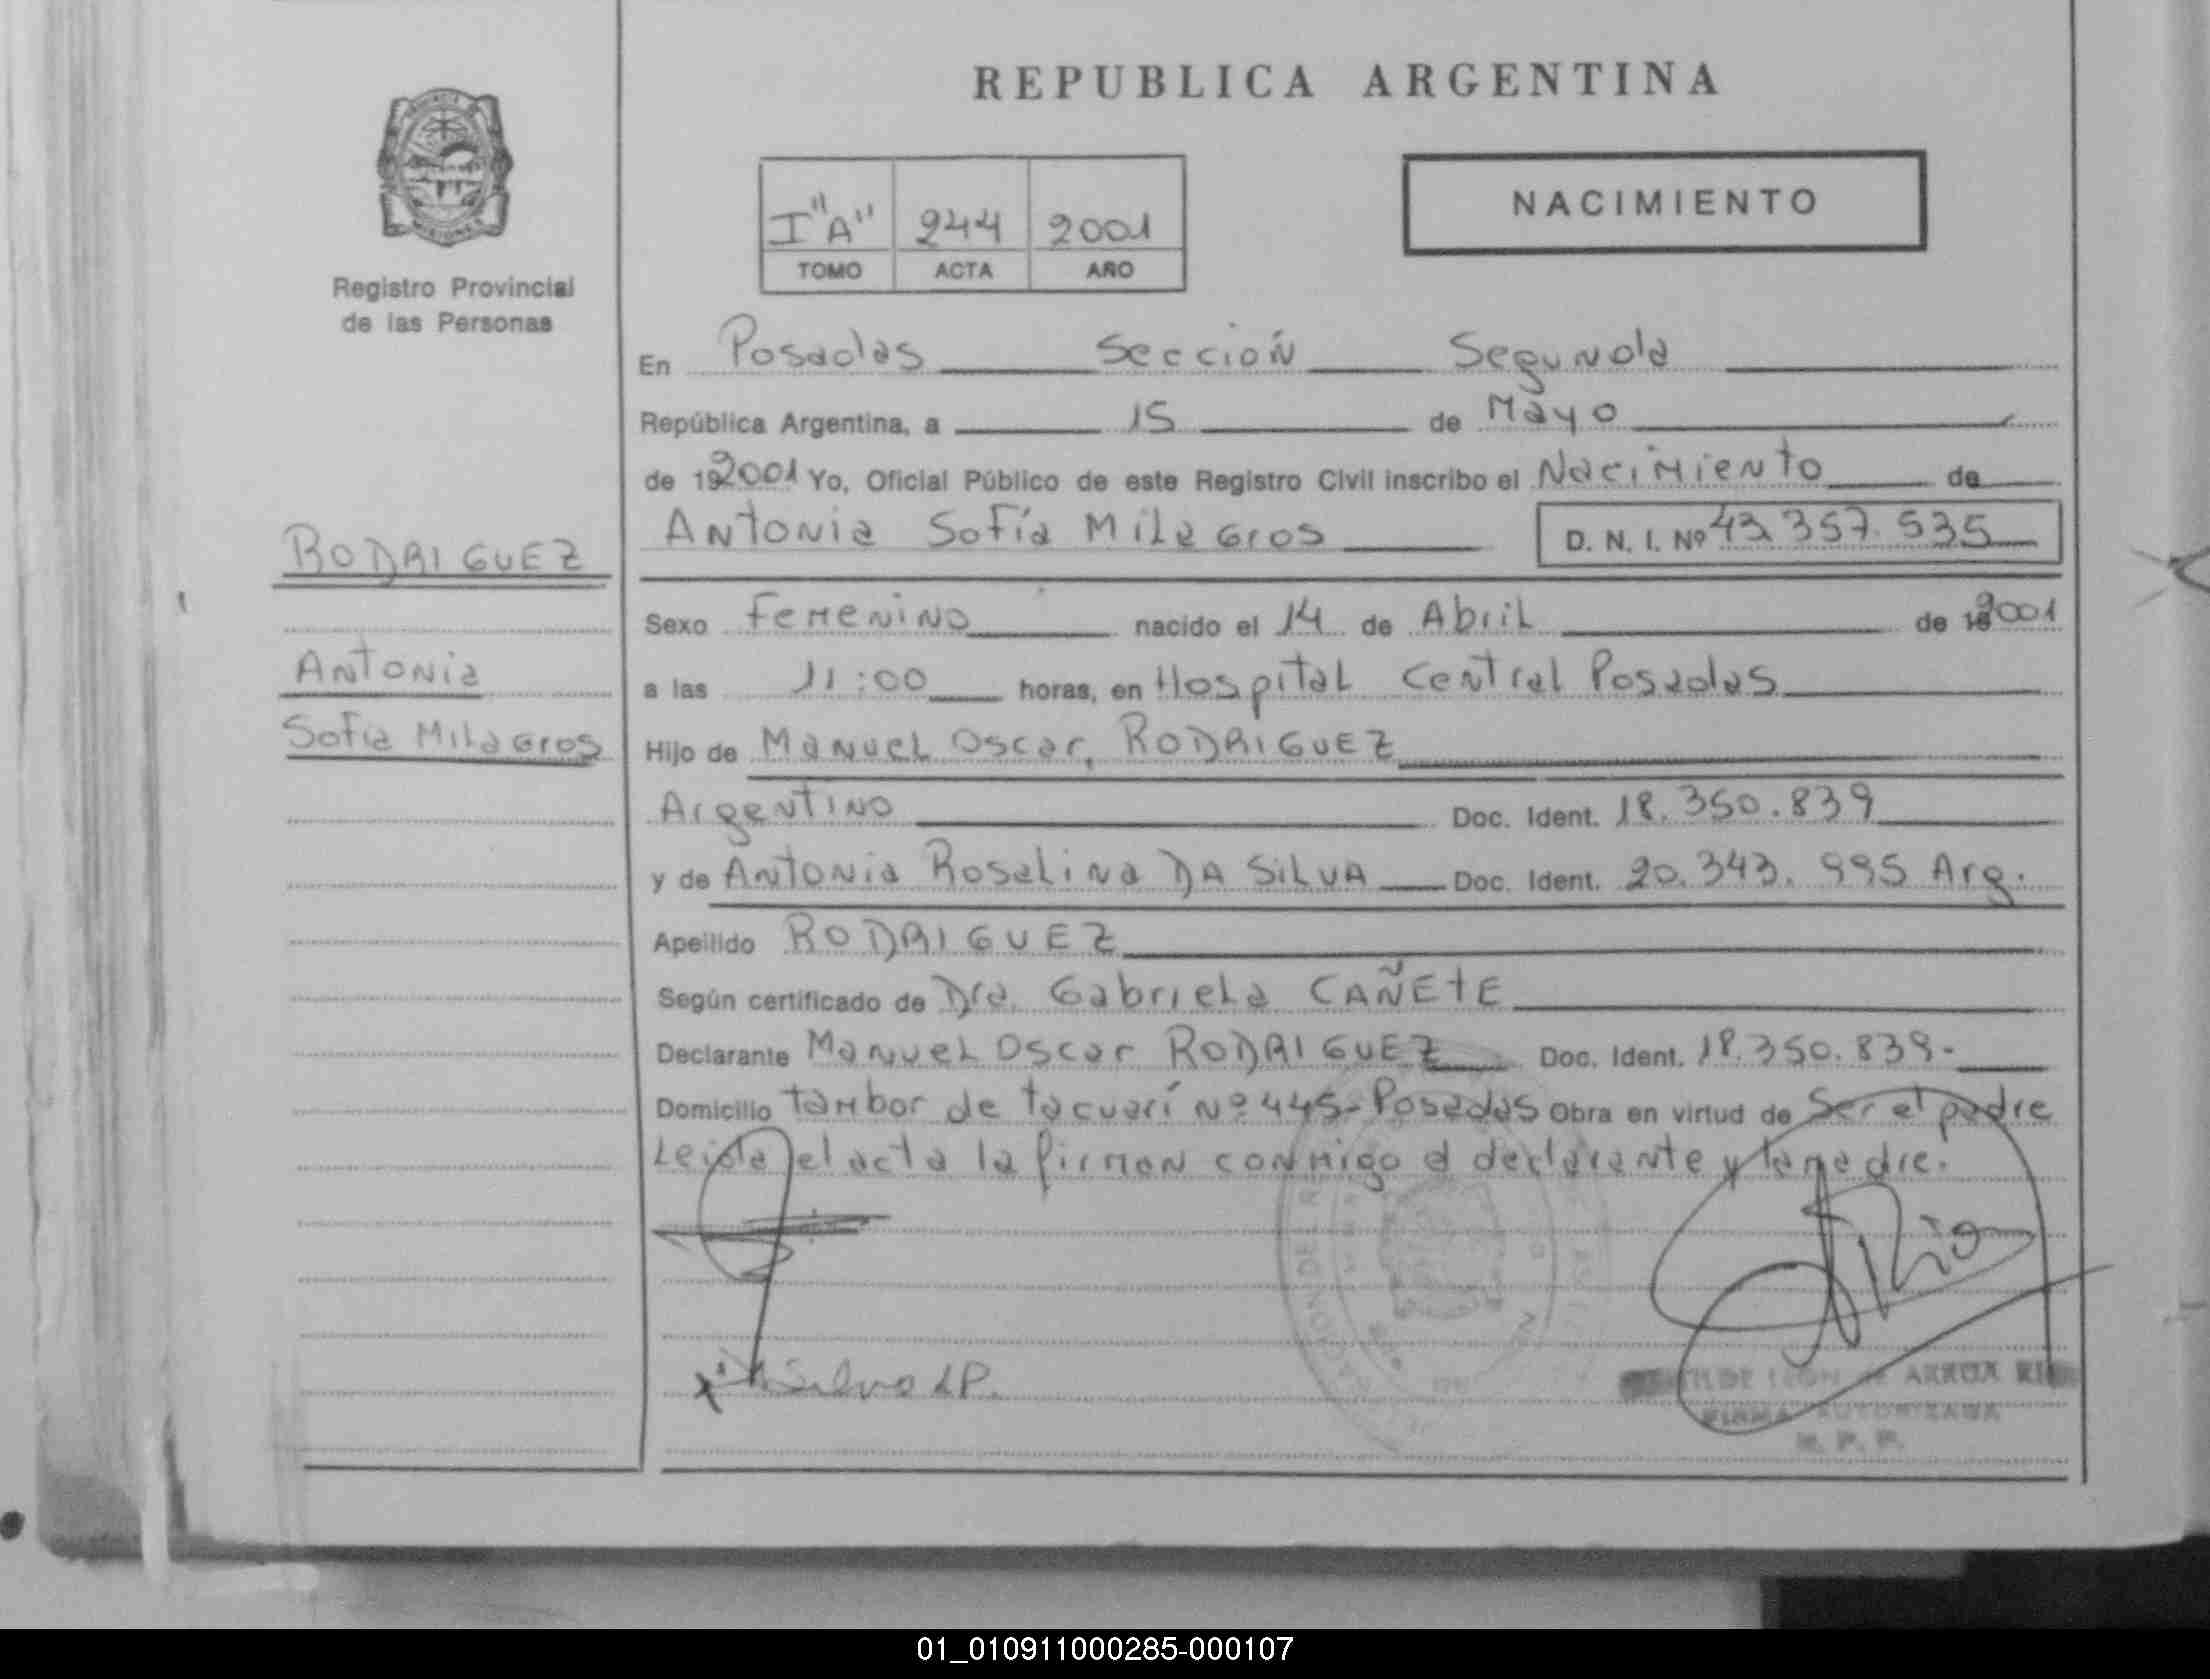 REPUBLICA ARGENTINA
NACIMIENTO
I "A" 244 2001
TOMO ACTA AÑO
Registro Provincial
de las Personas
En Posadas Sección Segunda
República Argentina, a 15 de Mayo
de 192001 Yo, Oficial Público de este Registro Civil inscribo el Nacimiento de
RODRIGUEZ
Antonia Sofía Milagros D. N. I. Nº 43.357.535
Sexo Femenino nacido el 14 de Abril de 2001
Antonia
a las 11:00 horas, en Hospital Central Posadas
Sofía Milagros
Hijo de Manuel Oscar, RODRIGUEZ
Argentino Doc. Ident. 18.350.839
y de Antonia Rosalina DA SILVA Doc. Ident. 20.343.995 Arg.
Apellido RODRIGUEZ
Según certificado de Dra. Gabriela CAÑETE
Declarante Manuel Oscar RODRIGUEZ Doc. Ident. 18.350.839-
Domicilio Tambor de Tacuarí Nº 445- Posadas Obra en virtud de Ser el padre
Leida el acta la firman conmigo el declarante y la madre.
FIRMA AUTORIZADA
01_010911000285-000107